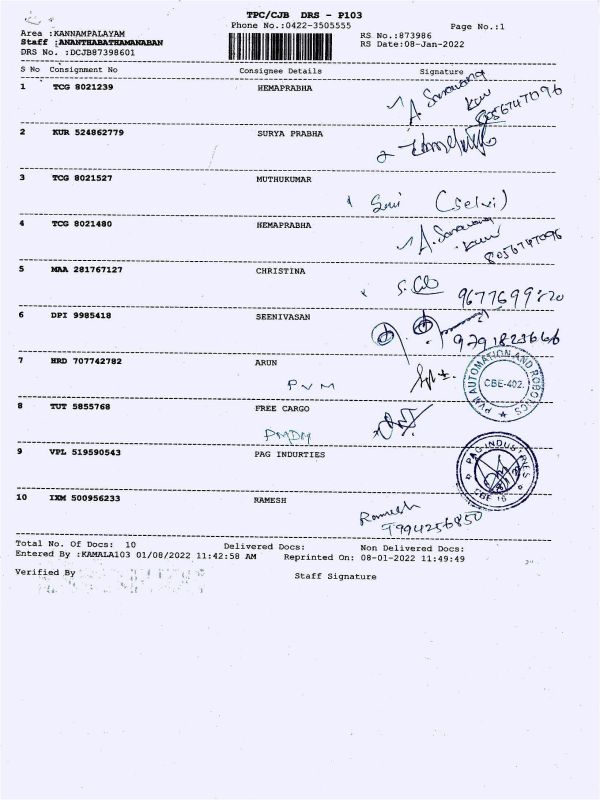 TPC/CJB DRS - P103
Phone No.:0422-3505555
Page No.:1
Area :KANNAMPALAYAM
RS No.:873986
Staff :ANANTHABATHAMANABAN
RS Date:08-Jan-2022
DRS No. :DCJB87398601
S No Consignment No Consignee Details Signature
1 TCG 8021239 HEMAPRABHA
A. Saravana
Kum
8056747096
2 KUR 524862779 SURYA PRABHA
3 TCG 8021527 MUTHUKUMAR
(Selvi)
4 TCG 8021480 HEMAPRABHA
A. Saravana
Kum
8056747096
5 MAA 281767127 CHRISTINA
6 DPI 9985418 SEENIVASAN
7 HRD 707742782 ARUN
PVM
PVM AUTOMATION AND ROBOTICS
CBE-402.
8 TUT 5855768 FREE CARGO
PMDM
9 VPL 519590543 PAG INDURTIES
PAG INDUSTRIES
CBE 16
10 IXM 500956233 RAMESH
Ramesh
9994256850
Total No. Of Docs: 10 Delivered Docs: Non Delivered Docs:
Entered By :KAMALA103 01/08/2022 11:42:58 AM Reprinted On: 08-01-2022 11:49:49
Verified By
Staff Signature